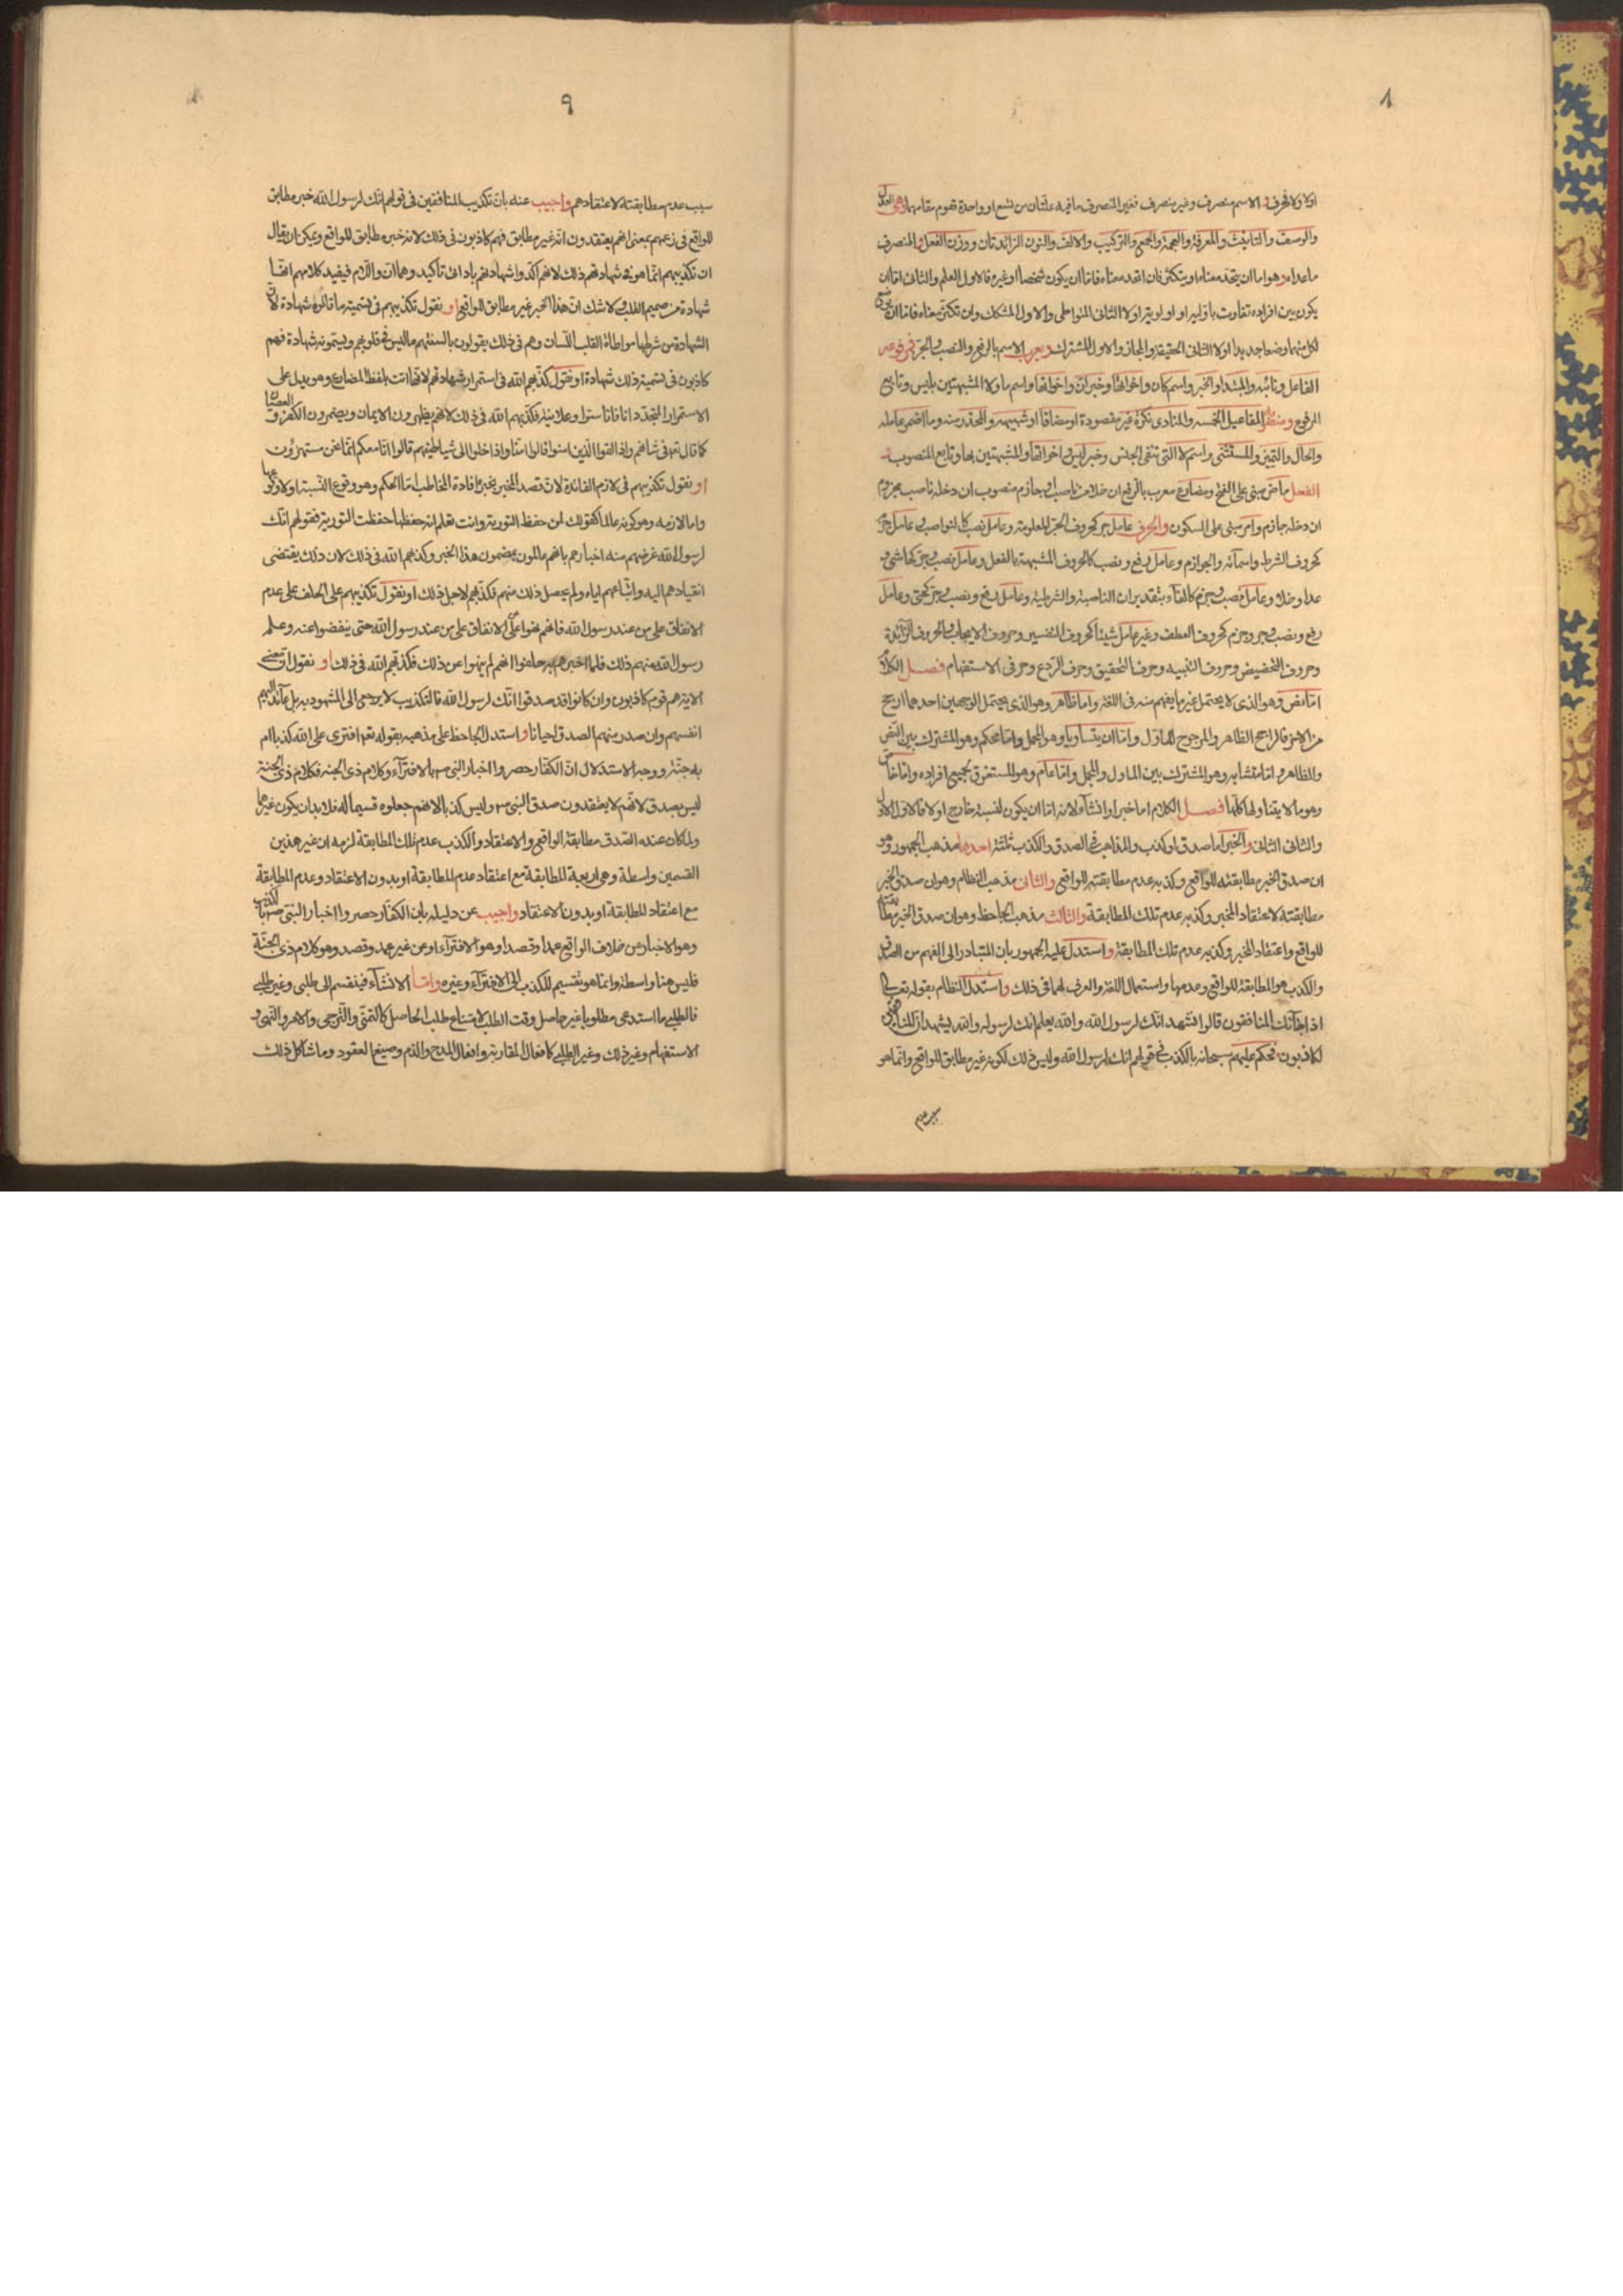 ٨
اولا ولا الحرف والاسم منصرف وغير منصرف فغير المنصرف ما فيه علتان من تسع او واحدة تقوم مقامهما وهى العدل
والوصف والتانيث والمعرفة والعجمة والجمع والتركيب والالف والنون الزائدتان ووزن الفعل والمنصرف
ما عداه وهو اما ان يتحد معناه او يتكثر فان اتحد معناه فاما ان يكون شخصا او غيره فالاول العلم والثانى اما ان
يكون بين افراده تفاوت باولية او اولوية اولا الثانى المتواطى والاول المشكك وان تكثر معناه فاما ان يوضع
لكل منهما وضعا جديدا اولا الثانى الحقيقة والمجاز والاول المشترك ويعرب الاسم بالرفع والنصب والجر فمرفوعه
الفاعل ونائبه والمبتدا والخبر واسم كان واخواتها وخبر ان واخواتها واسم ما ولا المشبهتين بليس وتابع
المرفوع ومنصوبه المفاعيل الخمسه والمنادى نكرة غير مقصودة او مضافا او شبيهه والمحذر منه وما اضمر عامله
والحال والتمييز والمستثنى واسم لا التى لنفى الجنس وخبر ليس واخواتها والمشبهتين بها وتابع المنصوب
الفعل ماض مبنى على الفتح ومضارع معرب بالرفع ان خلا من ناصب او جازم منصوب ان دخله ناصب مجزوم
ان دخله جازم وامر مبنى على السكون والحرف عامل جر كحروف الجر المعلومة وعامل نصب كالنواصب وعامل جزم
كحروف الشرط واسمآئه والجوازم وعامل رفع ونصب كالحروف المشبهة بالفعل وعامل نصب وجر كحاشى و
عدا وخلا وعامل نصب وجزم كالفآء بتقدير ان الناصبة والشرطية وعامل رفع ونصب وجر كحتى وعامل
رفع ونصب وجر وجزم كحروف العطف وغير عامل شيئا كحروف التفسير وحروف الايجاب والحروف الزائدة
وحروف التحضيض وحروف التنبيه وحرف التحقيق وحرف الردع وحرفى الاستفهام فصل الكلام
اما نص وهو الذى لا يحتمل غير ما يفهم منه فى اللغة واما ظاهر وهو الذى يحتمل الوجهين احدهما ارجح
من الاخر فالراجح الظاهر والمرجوح الماول واما ان يتساويا وهو المجمل واما محكم وهو المشترك بين النص
والظاهر واما متشابه وهو المشترك بين الماول والمجمل واما عام وهو المستغرق لجميع افراده واما خاص
وهو ما لا يتناولها كلها فصل الكلام اما خبر او انشآء لانه اما ان يكون لنسبته خارج اولا فالاول الاول
والثانى الثانى والخبر اما صدق او كذب والمذاهب فى الصدق والكذب ثلثة احدها مذهب الجمهور وهو
ان صدق الخبر مطابقته للواقع وكذبه عدم مطابقته للواقع والثانى مذهب النظام وهو ان صدق الخبر
مطابقته لاعتقاد المخبر وكذبه عدم تلك المطابقة والثالث مذهب الجاحظ وهو ان صدق الخبر مطابقته
للواقع واعتقاد المخبر وكذبه عدم تلك المطابقة واستدل عليه الجمهور بان المتبادر الى الفهم من الصدق
والكذب هو المطابقة للواقع وعدمها واستعمال اللغة والعرف لهما فى ذلك واستدل النظام بقوله تعالى
اذا جآئك المنافقون قالوا نشهد انك لرسول الله والله يعلم انك لرسوله والله يشهد ان المنافقين
لكاذبون فحكم عليهم سبحانه بالكذب فى قولهم انك لرسول الله وليس ذلك لكونه غير مطابق للواقع وانما هو
بسبب عدم
٩
سبب عدم مطابقته لاعتقادهم واجيب عنه بان تكذيب المنافقين فى قولهم انك لرسول الله خبر مطابق
للواقع فى زعمهم بمعنى انهم يعتقدون انه غير مطابق فهم كاذبون فى ذلك لانه خبر مطابق للواقع ويمكن ان يقال
ان تكذيبهم انما هو فى شهادتهم ذلك لانهم اكدوا شهادتهم باداتى تاكيد وهما ان واللام فيفيد كلامهم انها
شهادة من صميم القلب ولا شك ان هذا الخبر غير مطابق للواقع او نقول تكذيبهم فى تسمية ما قالوه شهادة لان
الشهادة من شرطها مواطاة القلب اللسان وهم فى ذلك يقولون بالسنتهم ما ليس فى قلوبهم ويسمونه شهادة فهم
كاذبون فى تسميته ذلك شهادة او نقول كذبهم الله فى استمرار شهادتهم لانها اتت بلفظ المضارع وهو يدل على
الاستمرار المتجدد انا فانا سترا وعلانية فكذبهم الله فى ذلك لانهم يظهرون الايمان ويضمرون الكفر والعصيان
كما قال تعالى فى شانهم واذا لقوا الذين امنوا قالوا امنا واذا خلوا الى شياطينهم قالوا انا معكم انما نحن مستهزؤن
او نقول تكذيبهم فى لازم الفائدة لان قصد المخبر بخبره افادة المخاطب اما الحكم وهو وقوع النسبة اولا وقوعها
واما لازمه وهو كونه عالما كقولك لمن حفظ التورية وانت تعلم انه حفظها حفظت التورية فقولهم انك
لرسول الله غرضهم منه اخبارهم بانهم عالمون بمضمون هذا الخبر وكذبهم الله فى ذلك لان ذلك يقتضى
انقيادهم اليه واتباعهم اياه ولم يحصل ذلك منهم فكذبهم لاجل ذلك او نقول تكذيبهم على الحلف على عدم
الانفاق على من عند رسول الله فانهم نهوا عن الانفاق على من عند رسول الله حتى ينفضوا عنه وعلم
رسول الله منهم ذلك فلما اخبرهم به حلفوا انهم لم ينهوا عن ذلك فكذبهم الله فى ذلك او نقول ان معنى
الاية هم قوم كاذبون وان كانوا قد صدقوا انك لرسول الله فالتكذيب لا يرجع الى المشهود به بل عائد اليهم
انفسهم وان صدر منهم الصدق احيانا واستدل الجاحظ على مذهبه بقوله تعالى افترى على الله كذبا ام
به جنة ووجه الاستدلال ان الكفار حصروا اخبار النبى ص بالافترآء وكلام ذى الجنة فكلام ذى الجنة
ليس بصدق لانهم لا يعتقدون صدق النبى ص وليس كذبا لانهم جعلوه قسيما له فلا بد ان يكون غيرهما
ولما كان عنده الصدق مطابقة الواقع والاعتقاد والكذب عدم تلك المطابقة لزمه ان غير هذين
القسمين واسطة وهى اربعة المطابقة مع اعتقاد عدم المطابقة او بدون الاعتقاد وعدم المطابقة
مع اعتقاد المطابقة او بدون الاعتقاد واجيب عن دليله بان الكفار حصروا اخبار النبى ص بالكذب
وهو الاخبار عن خلاف الواقع عمدا وقصدا وهو الافترآء او عن غير عمد وقصد وهو كلام ذى الجنة
فليس هنا واسطة وانما هو تقسيم للكذب الى الافترآء وغيره واما الانشآء فينقسم الى طلبى وغير طلبى
فالطلبى ما استدعى مطلوبا غير حاصل وقت الطلب لامتناع طلب الحاصل كالتمنى والترجى والامر والنهى و
الاستفهام وغير ذلك وغير الطلبى كافعال المقاربة وافعال المدح والذم وصيغ العقود وما شاكل ذلك